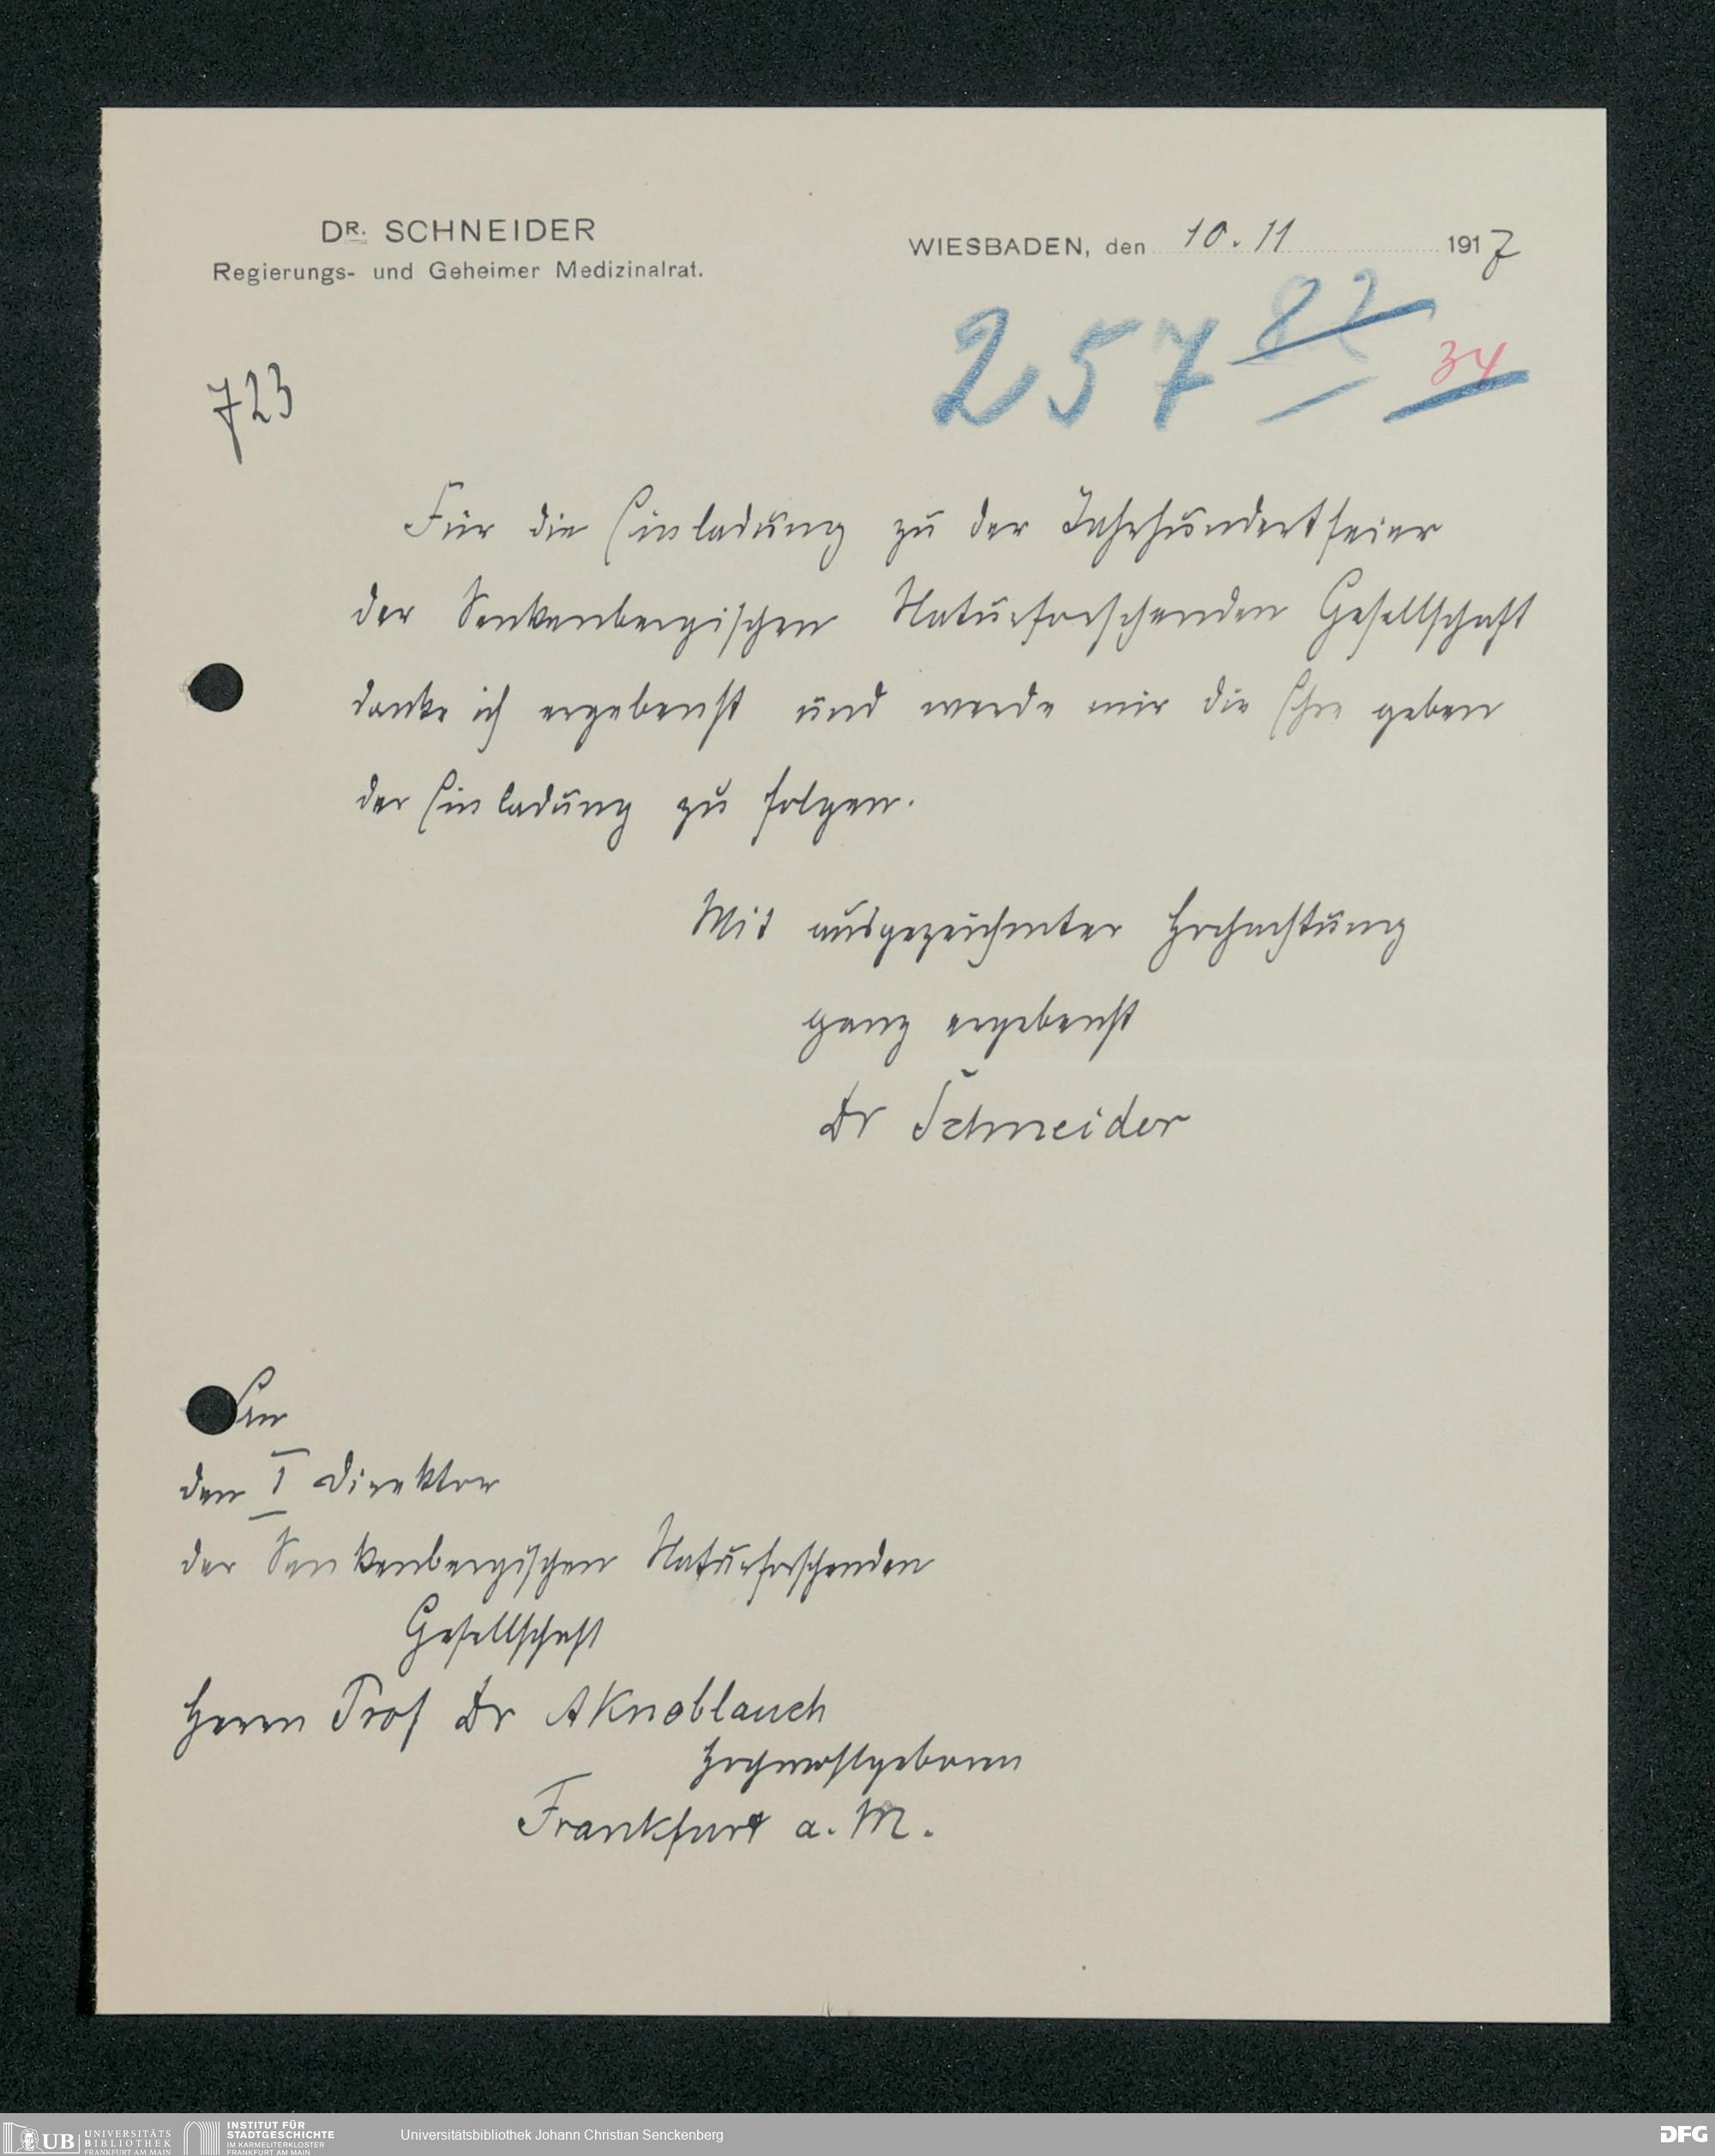 DR. SCHNEIDER
Regierungs- und Geheimer Medizinalrat.
WIESBADEN, den 10. 11 1917
257
34
723
Für die Einladung zu der Jahrhundertfeier
der Senkenbergischen Naturforschenden Gesellschaft
danke ich ergebenst und werde mir die Ehre geben
der Einladung zu folgen.
Mit ausgezeichneter Hochachtung
ganz ergebenst
Dr Schneider
An
den I Direktor
der Senkenbergischen Naturforschenden
Gesellschaft
Herrn Prof Dr A Knoblauch
Hochwohlgeboren
Frankfurt a. M.
UB UNIVERSITÄTS
BIBLIOTHEK
FRANKFURT AM MAIN
INSTITUT FÜR
STADTGESCHICHTE
IM KARMELITERKLOSTER
FRANKFURT AM MAIN
Universitätsbibliothek Johann Christian Senckenberg
DFG